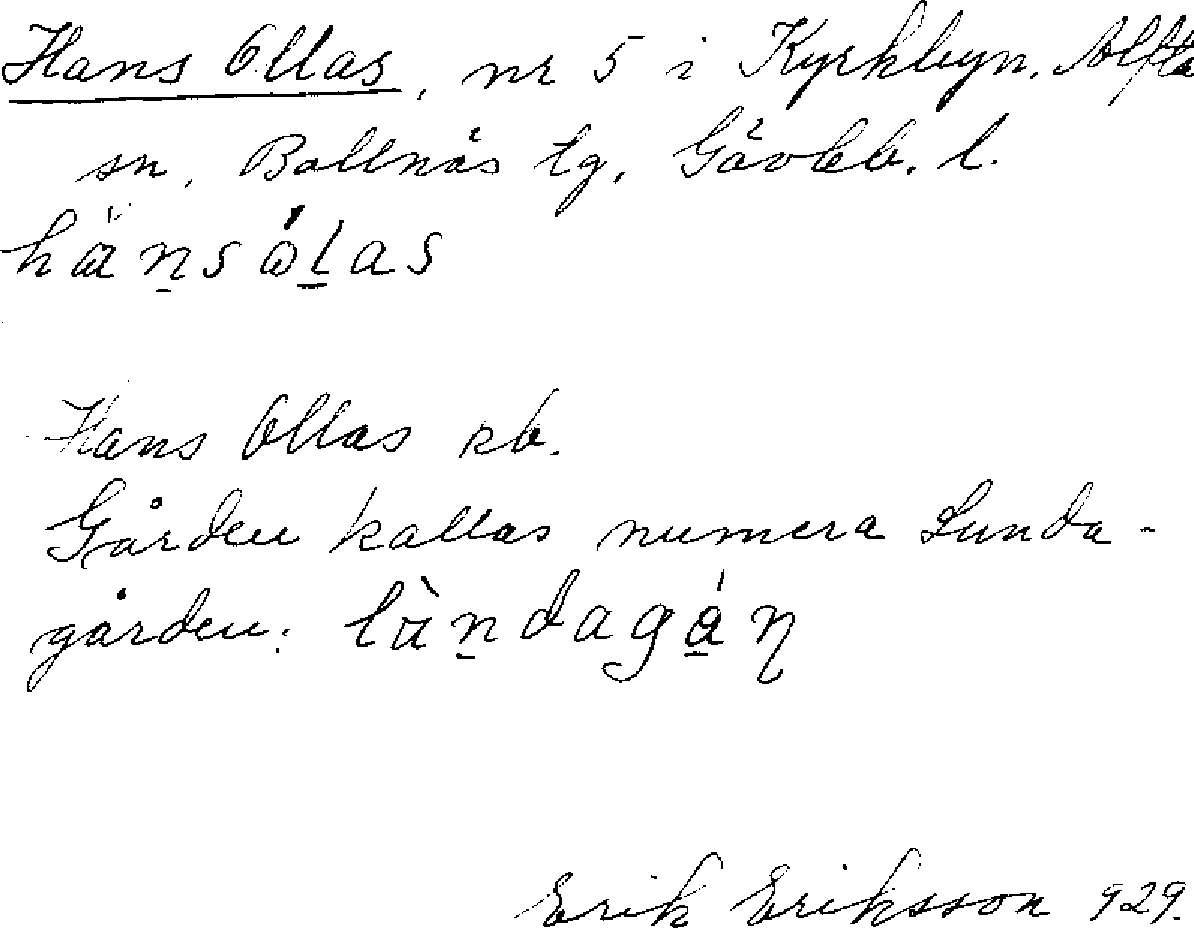 Hans Ollas, nr 5 i Kyrkbyn, Alfta
sn, Bollnäs tg, Gävleb. l.
hä̀ṉsólas
Hans Ollas rb.
Gården kallas numera Lunda-
gården: lùṉdagǻ̱ɳ
Erik Eriksson 929.